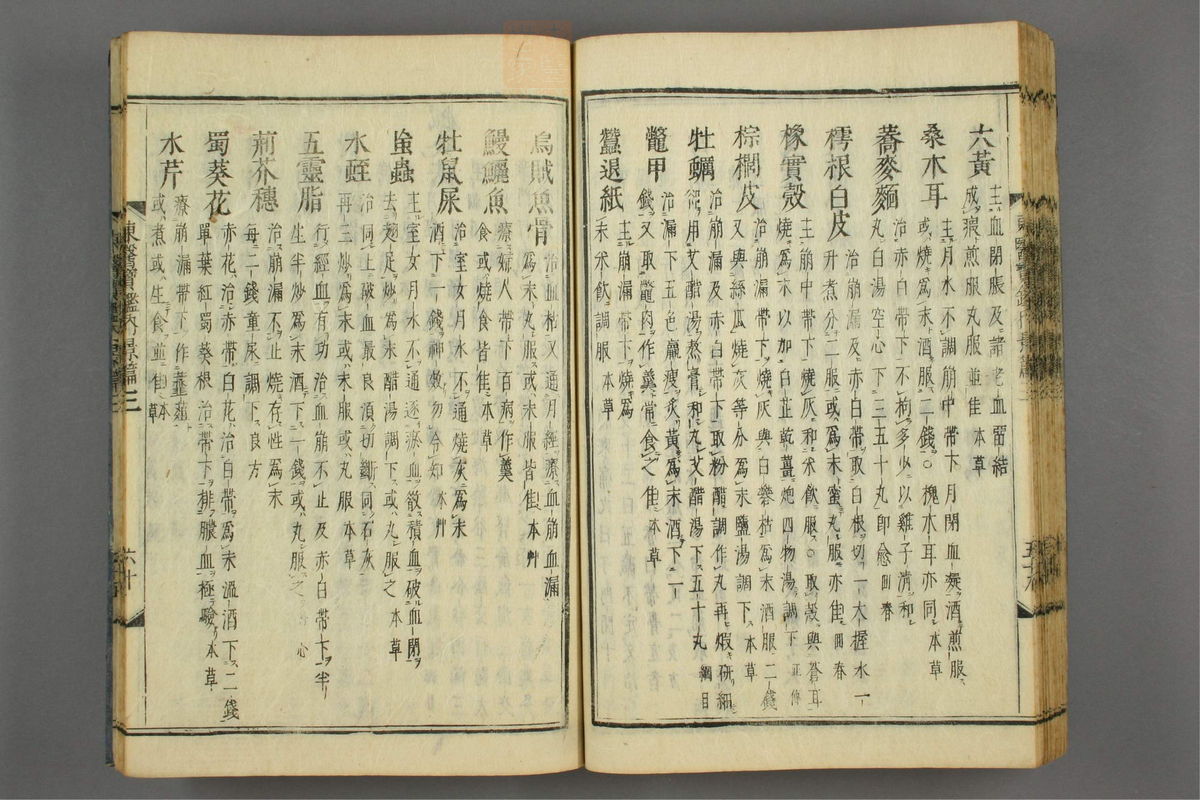 大黃
主血閉脹及諸老血留結
成瘕煎服丸服並佳本草
桑木耳
主月水不調崩中帶下月閉血凝酒煎服
或燒爲末酒服二錢○槐木耳亦同本草
蕎麥麵
治赤白帶下不拘多少以雞子淸和
丸白湯空心下三五十丸卽愈回春
樗根白皮
治崩漏及赤白帶取白根切一大握水一
升煮分二服或爲末蜜丸服亦佳回春
橡實殼
主崩中帶下燒灰和米飮服○取殼與蒼耳
燒爲末以加白芷乾薑炮四物湯調下正傳
棕櫚皮
治崩漏帶下燒灰與白礬枯爲末酒服二錢
又與絲瓜燒灰等分爲末鹽湯調下本草
牡蠣
治崩漏及赤白帶下取粉醋調作丸再煆研細
却用艾醋熬膏和丸艾醋湯下五十丸綱目
鼈甲
治漏下五色羸瘦炙黃爲末酒下一
錢又取鼈肉作羹常食之佳本草
蠶退紙
主崩漏帶下燒爲
末米飮調服本草
烏賊魚骨
治血枯又通月經療血崩血漏
爲末丸服或末服皆佳本艸
鰻鱺魚
療婦人帶下百病作羹
食或燒食皆佳本草
牡鼠屎
治室女月水不通燒灰爲末
酒下一錢神效勿令知本艸
虻蟲
主室女月水不通逐瘀血破積血破血閉
去翅足炒爲末醋湯調下或丸服之本草
水蛭
治同上破血最良須切斷同石灰
再三炒爲末或末服或丸服本草
五靈脂
行經血有功治血崩不止及赤白帶下半
生半炒爲末酒下一錢或丸服之心
荊芥穗
治崩漏不止燒存性爲末
每二錢童尿調下良方
蜀葵花
赤花治赤帶白花治白帶爲末溫酒下二錢
單葉紅蜀葵根治帶下排膿血極驗本草
水芹
療崩漏帶下作虀葅
或煮或生食並佳本草
東醫寶鑑內景篇三
六十